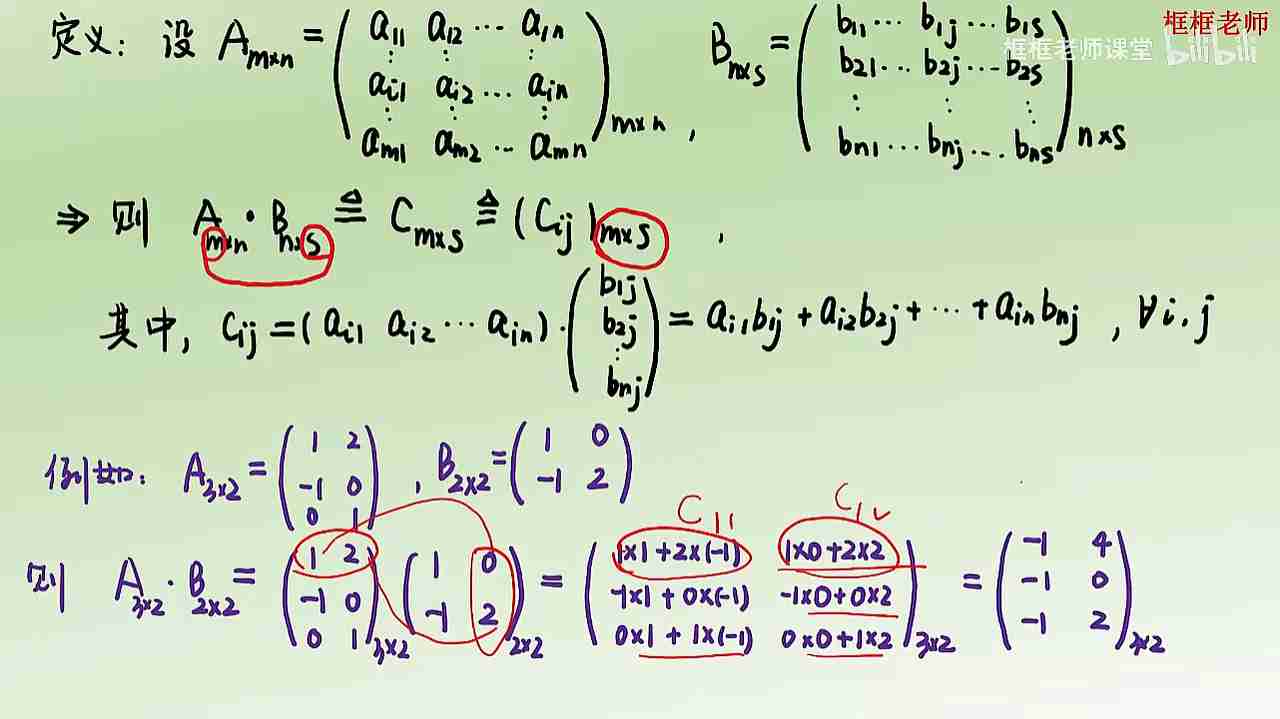 框框老师
框框老师课堂 bilibili
定义：设 A_{m×n} = \begin{pmatrix} a_{11} & a_{12} & \cdots & a_{1n} \\ \vdots & \vdots & & \vdots \\ a_{i1} & a_{i2} & \cdots & a_{in} \\ \vdots & \vdots & & \vdots \\ a_{m1} & a_{m2} & \cdots & a_{mn} \end{pmatrix}_{m×n} , B_{n×s} = \begin{pmatrix} b_{11} & \cdots & b_{1j} & \cdots & b_{1s} \\ b_{21} & \cdots & b_{2j} & \cdots & b_{2s} \\ \vdots & & \vdots & & \vdots \\ b_{n1} & \cdots & b_{nj} & \cdots & b_{ns} \end{pmatrix}_{n×s}
⇒ 则 A_{m×n} · B_{n×s} ≜ C_{m×s} ≜ (C_{ij})_{m×s} ,
其中, C_{ij} = (a_{i1} a_{i2} ⋯ a_{in}) · \begin{pmatrix} b_{1j} \\ b_{2j} \\ \vdots \\ b_{nj} \end{pmatrix} = a_{i1}b_{1j} + a_{i2}b_{2j} + ⋯ + a_{in}b_{nj} , ∀i.j
例如: A_{3×2} = \begin{pmatrix} 1 & 2 \\ -1 & 0 \\ 0 & 1 \end{pmatrix} , B_{2×2} = \begin{pmatrix} 1 & 0 \\ -1 & 2 \end{pmatrix}
C_{11} C_{12}
则 A_{3×2} · B_{2×2} = \begin{pmatrix} 1 & 2 \\ -1 & 0 \\ 0 & 1 \end{pmatrix}_{3×2} \begin{pmatrix} 1 & 0 \\ -1 & 2 \end{pmatrix}_{2×2} = \begin{pmatrix} 1×1+2×(-1) & 1×0+2×2 \\ -1×1+0×(-1) & -1×0+0×2 \\ 0×1+1×(-1) & 0×0+1×2 \end{pmatrix}_{3×2} = \begin{pmatrix} -1 & 4 \\ -1 & 0 \\ -1 & 2 \end{pmatrix}_{3×2}